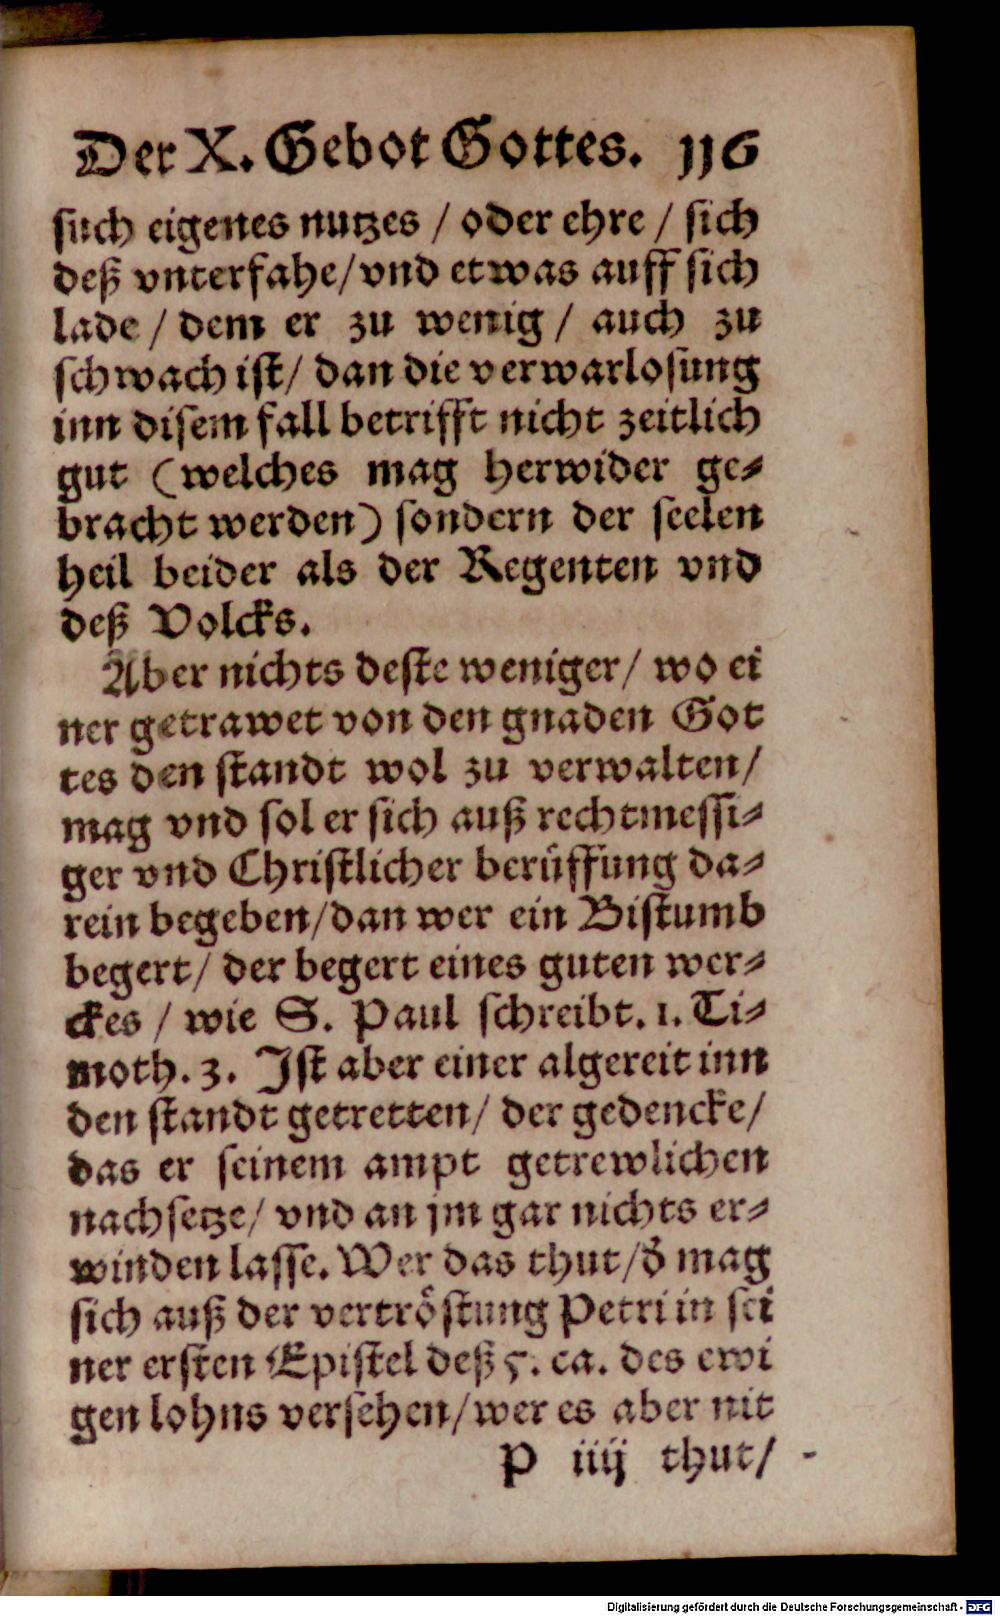 Der X. Gebot Gottes. 116
such eigenes nutzes / oder ehre / sich
deß vnterfahe/ vnd etwas auff sich
lade / dem er zu wenig / auch zu
schwach ist/ dan die verwarlosung
inn disem fall betrifft nicht zeitlich
gut (welches mag herwider ge⸗
bracht werden) sondern der seelen
heil beider als der Regenten vnd
deß Volcks.
Aber nichts deste weniger/ wo ei
ner getrawet von den gnaden Got
tes den standt wol zu verwalten/
mag vnd sol er sich auß rechtmessi⸗
ger vnd Christlicher berüffung da⸗
rein begeben/ dan wer ein Bistumb
begert/ der begert eines guten wer⸗
ckes / wie S. Paul schreibt. 1. Ti⸗
moth. 3. Ist aber einer algereit inn
den standt getretten/ der gedencke/
das er seinem ampt getrewlichen
nachsetze/ vnd an jm gar nichts er⸗
winden lasse. Wer das thut/ d̕ mag
sich auß der vertröstung Petri in sei
ner ersten Epistel deß 5. ca. des ewi
gen lohns versehen/ wer es aber nit
P iiij thut/
Digitalisierung gefördert durch die Deutsche Forschungsgemeinschaft - DFG